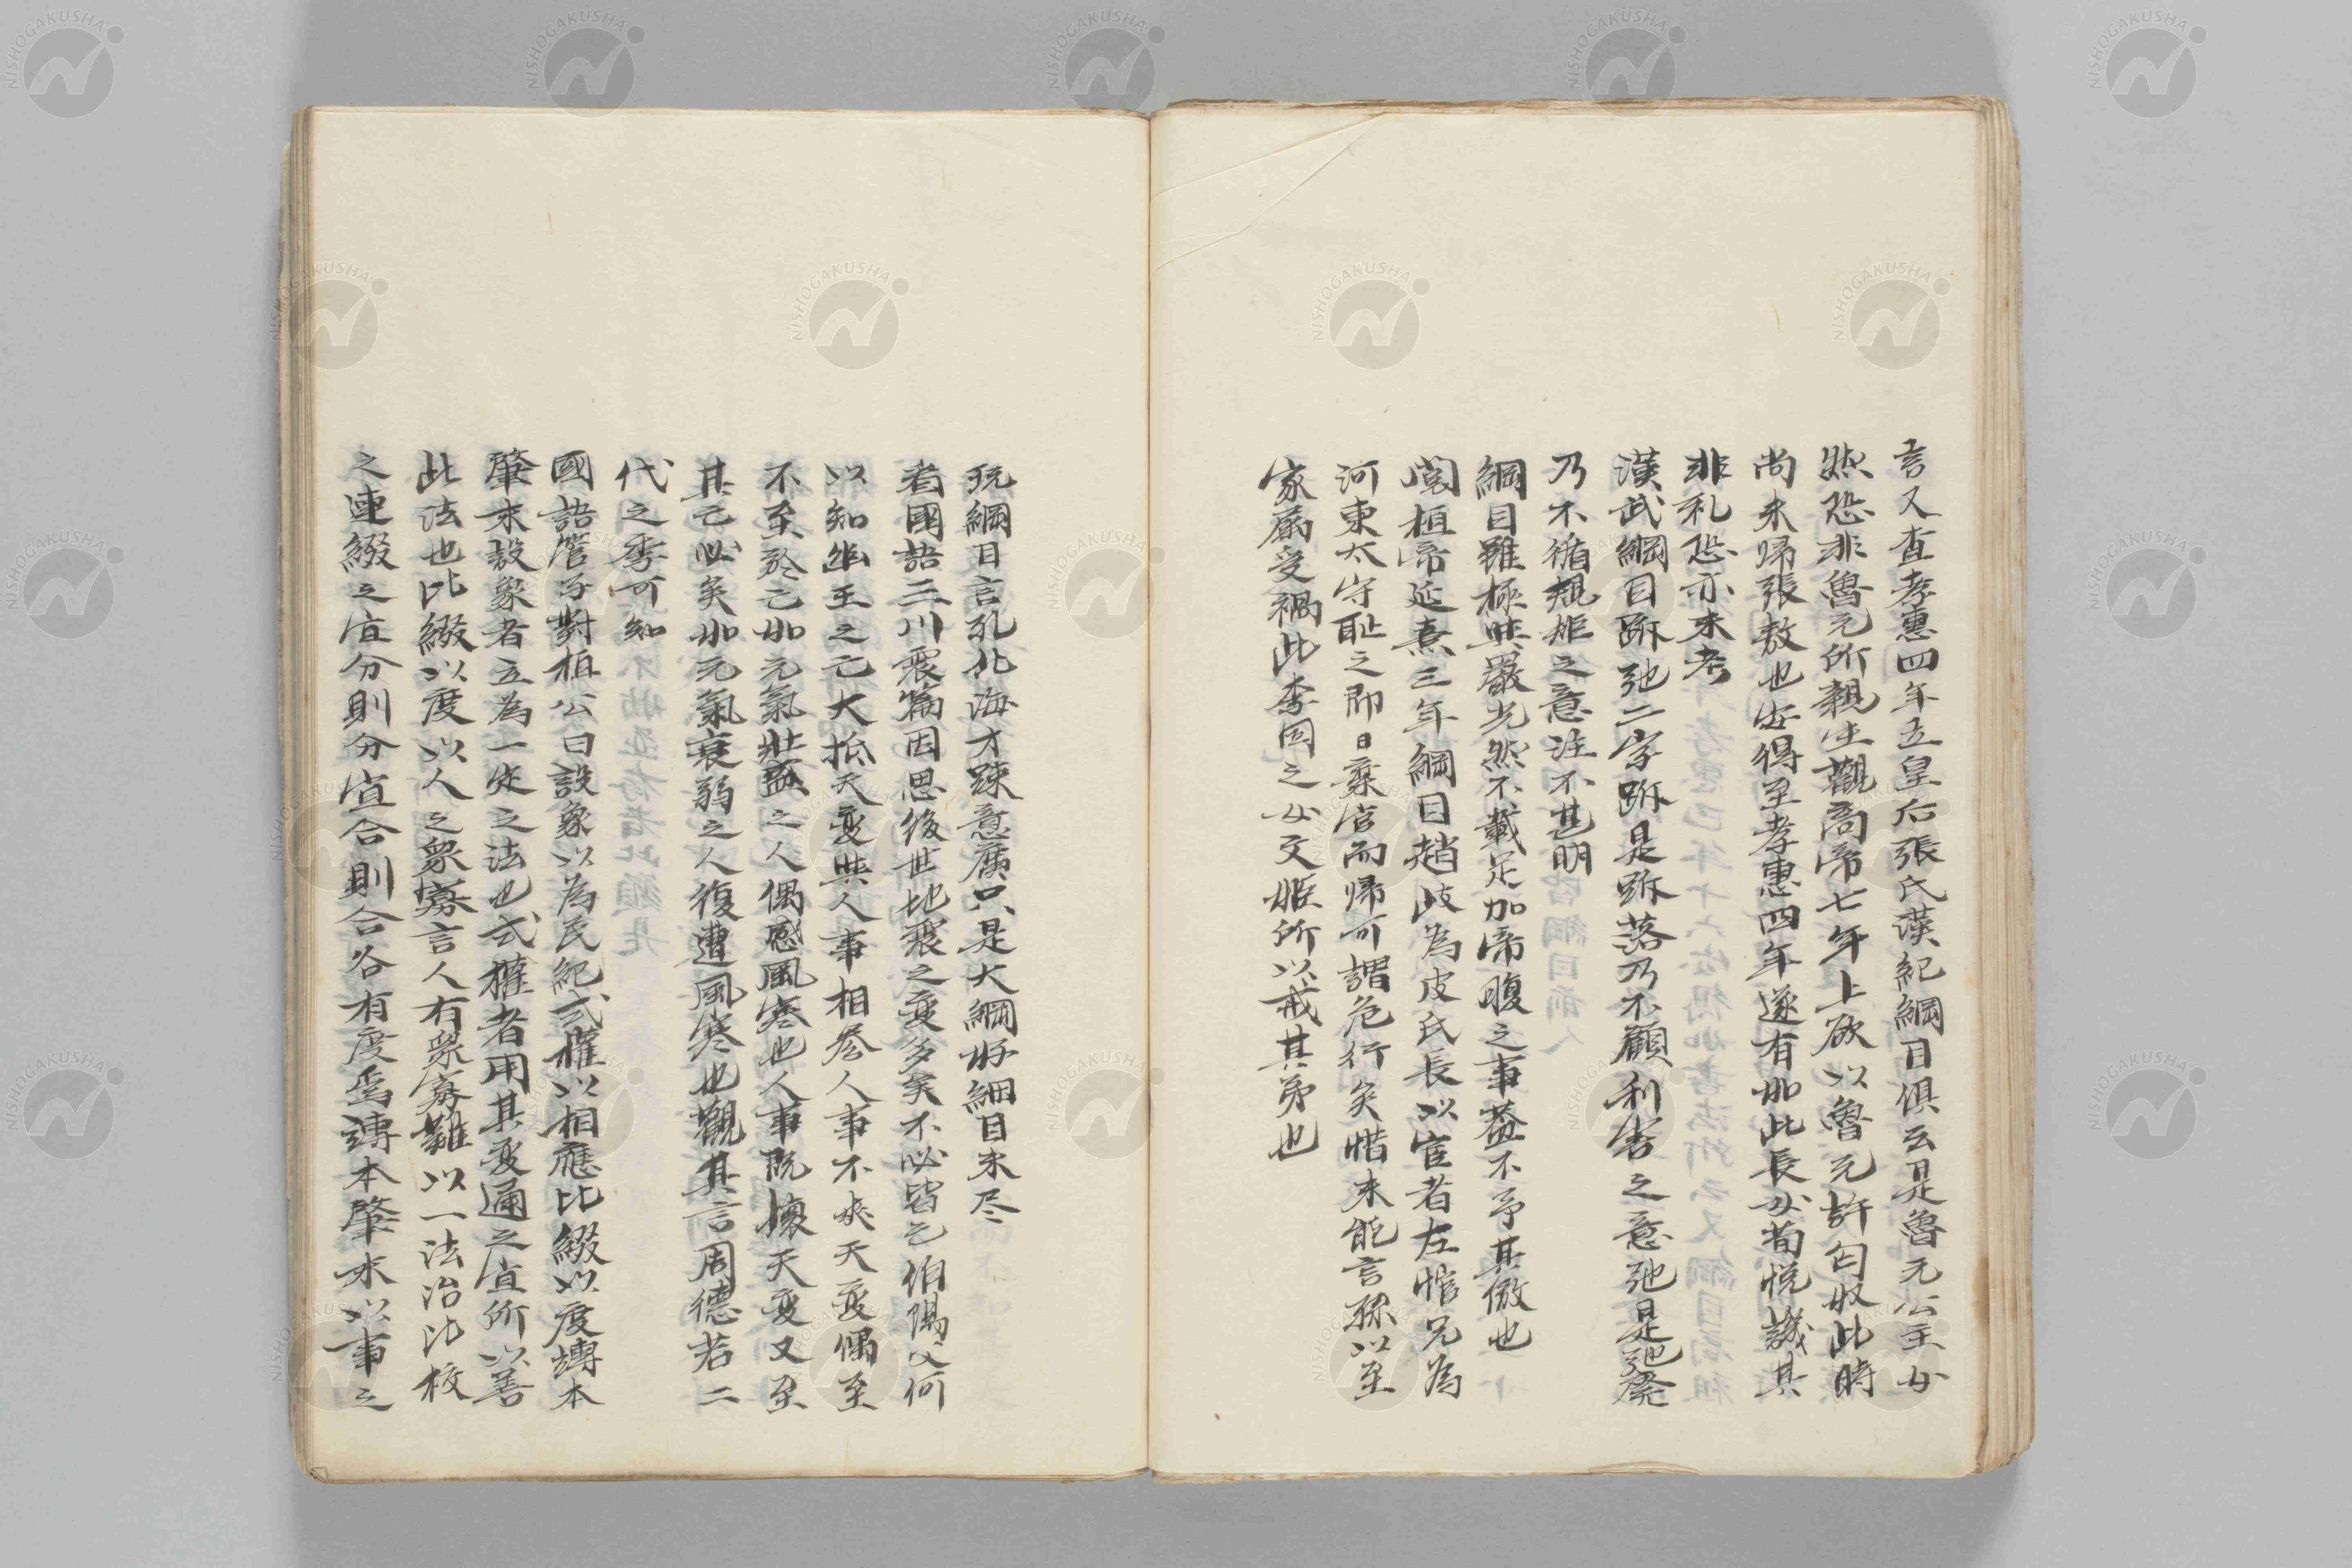 言又查孝惠四年立皇后張氏漢紀綱目俱云是魯元公主女
然恐非魯元所親生觀高帝七年上欲以魯元許匈奴此時
尚未帰張敖也安得至孝惠四年遂有如此長女荀悦譏其
非礼恐亦未考
漢武綱目跅弛二字跅是跅落乃不顧利害之意弛是弛廃
乃不循規矩之意注不甚明
綱目雖極典嚴光然不載足加帝腹之事蓋不予其傲也
閲桓帝延熹三年綱目趙岐為皮氏長以宦者左悺兄為
河東太守耻之即日棄官而帰可謂危行矣惜未能言孫以至
家屬受禍此李固之女文姬所以戒其弟也
玩綱目言孔北海才踈意廣只是大綱好細目未尽
看國語三川震篇因思後世地震之変多矣不必皆亡伯陽父何
以知幽王之亡大抵天変與人事相参人事不失天変偶至
不至於亡如元氣壯盛之人偶感風寒也人事既壞天変又至
其亡必矣如元氣衰弱之人復遭風寒也觀其言周德若二
代之季可知
國語管子對桓公曰設象以為民紀式權以相應比綴以度竱本
肇末設象者立為一定之法也式權者用其変通之宜所以善
此法也比綴以度以人之衆寡言人有衆寡難以一法治比校
之連綴之宜分則分宜合則合各有度焉竱本肇末以事之